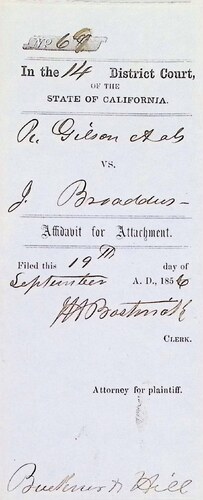 No 69
In the 14 District Court,
OF THE
STATE OF CALIFORNIA.
R. Gilson et als
VS.
J. Broaddus
Affidavit for Attachment.
Filed this 19th day of
September A. D., 1856
CLERK.
Attorney for plaintiff.
Buckner & Hill